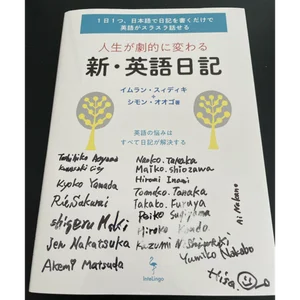 1日1つ、日本語で日記を書くだけで
英語がスラスラ話せる
人生が劇的に変わる
新・英語日記
イムラン・スィディキ
+
シモン・オオゴ著
英語の悩みは
すべて日記が解決する
Toshihiko Aoyama
Kawasaki City
Kyoko Yamada
Rie Sakurai
Shigeru Maki
Jen Nakatsuka
Akemi Matsuda
Naoko Tanaka
Maiko Shiozawa
Hiromi Inami
Tomoko Tanaka
Takako Furuya
Reiko Sujishima
Hiroko Kondo
Kazumi Nishiwaki
Yumiko Nakabo
Hisa
Ai Nakano
InteLingo